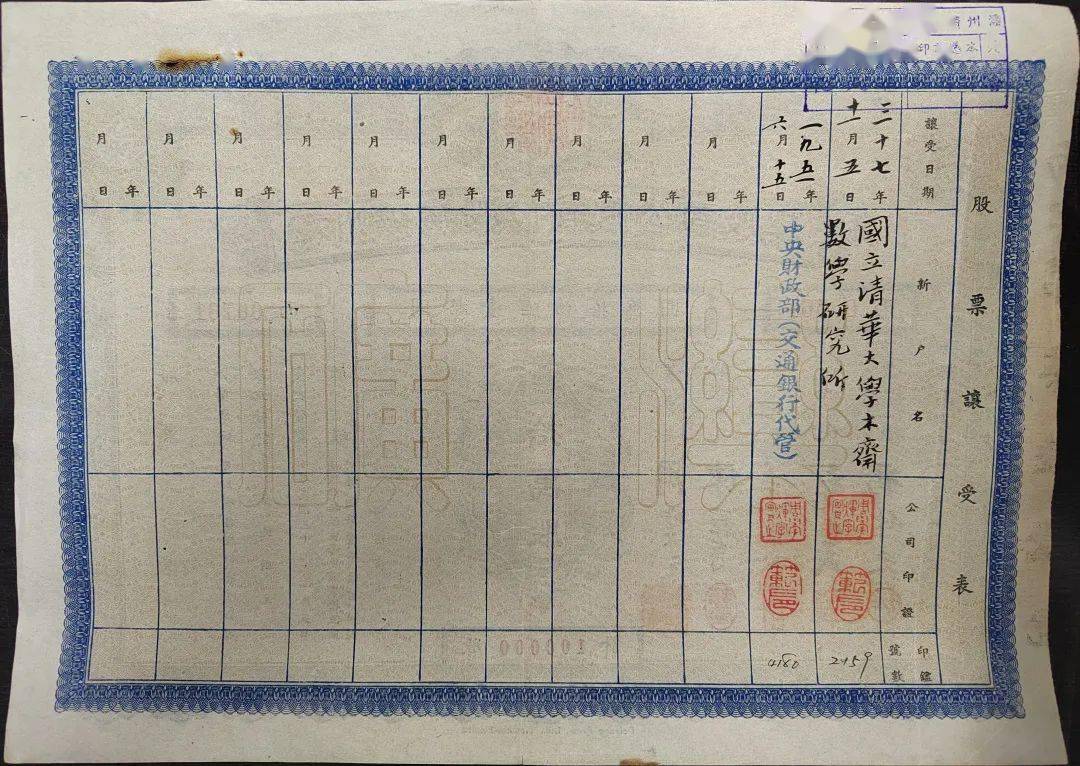 股票讓受表
讓受日期
新戶名
公司印證
印鑑號數
三十七年
十一月五日
國立清華大學木齋
數學研究所
2459
一九五一年
六月十五日
中央財政部(交通銀行代管)
4180
年
月
日
年
月
日
年
月
日
年
月
日
年
月
日
年
月
日
年
月
日
年
月
日
年
月
日
年
月
日